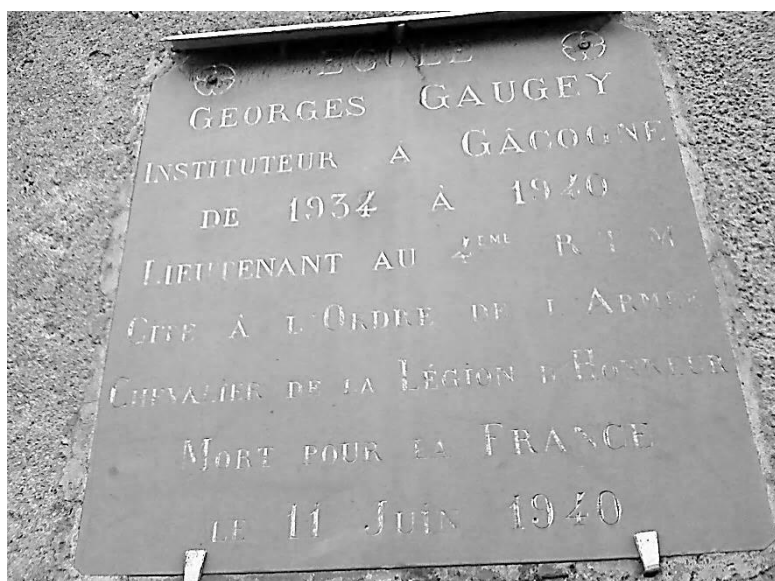 ECOLE
GEORGES GAUGEY
INSTITUTEUR A GÂCOGNE
DE 1934 À 1940
LIEUTENANT AU 4ÈME R T M
CITÉ À L'ORDRE DE L'ARMÉE
CHEVALIER DE LA LÉGION D'HONNEUR
MORT POUR LA FRANCE
LE 11 JUIN 1940